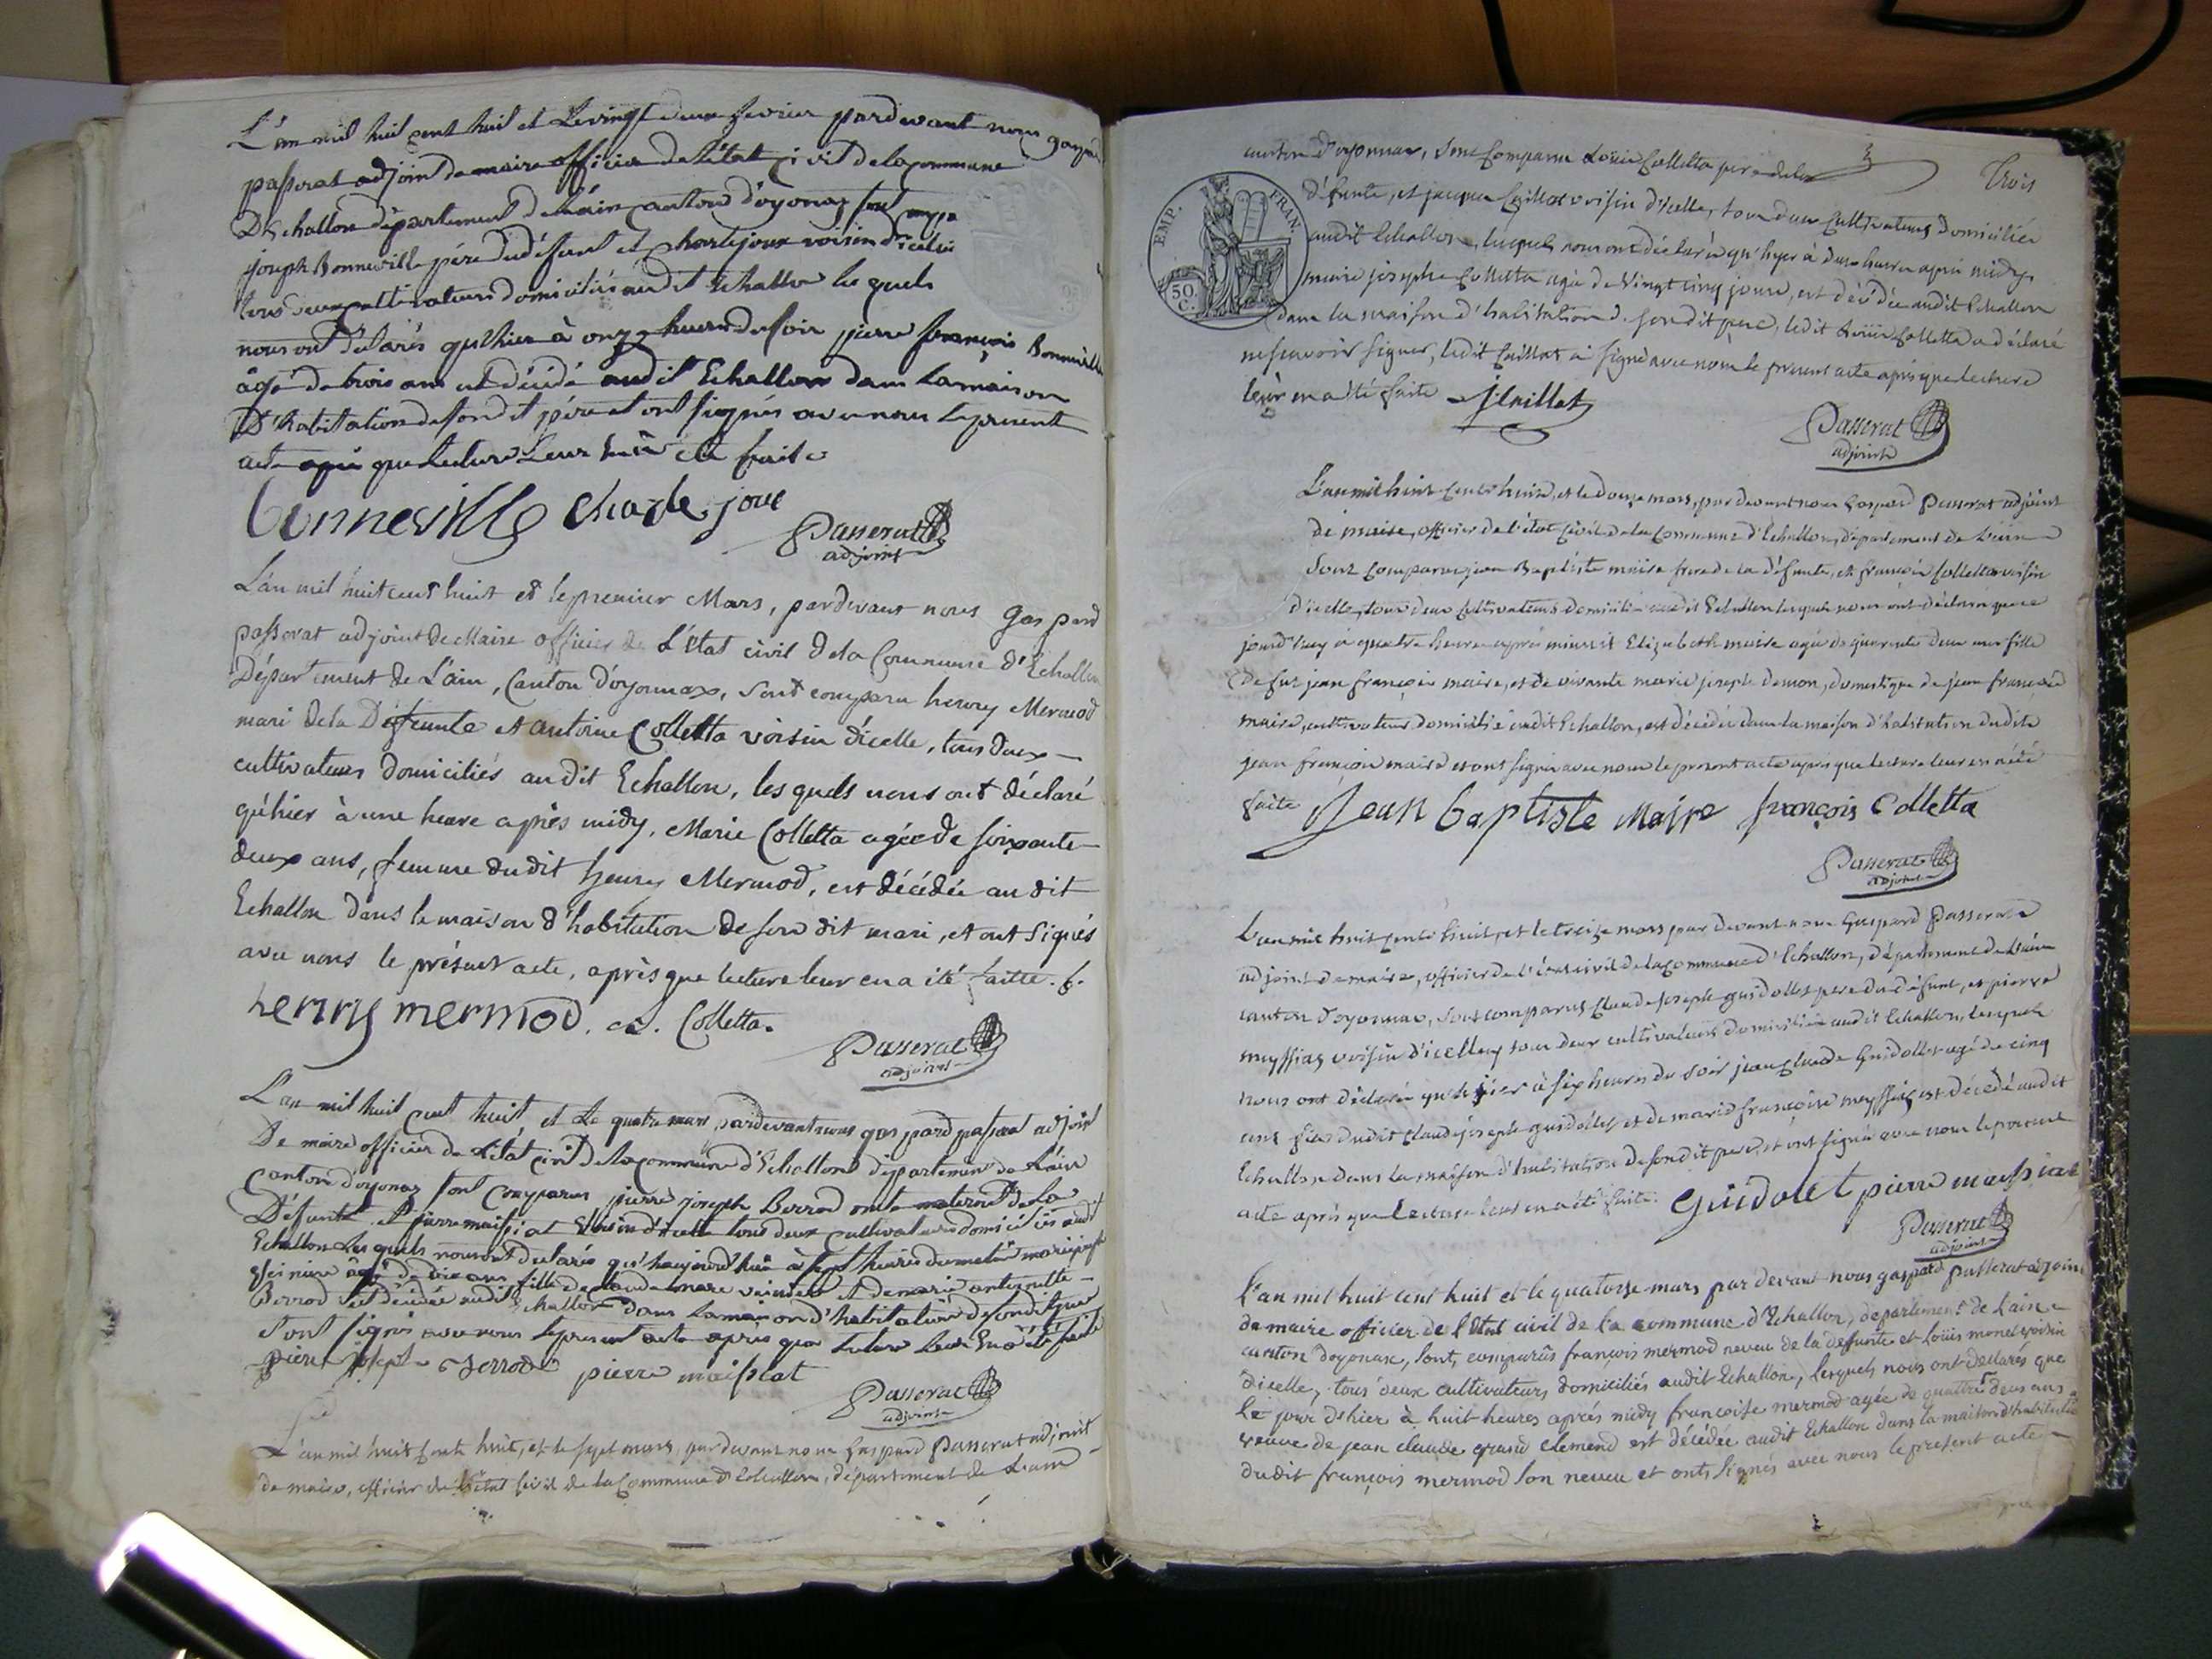 L'an mil huit cent huit et le vingt deux fevrier pardevant nous gaspard
passerat adjoin de maire officier de l'état civil de la commune
D'Echallon département de l'ain canton d'oyonaz sont comparu
joseph Bonneville père du défunt et charlejoux voisin d'icelui
tous deux cultivateurs domiciliés audit Echallon les quels
nous ont déclarés qu'hier à onze heures du soir pierre françois Bonneville
âgé de trois ans est décédé audit Echallon dans la maison
D'habitation de son dit père et ont signés avec nous le present
acte après que lecture Leur en a été fait
bonneville charle joux
Passerat
adjoint
L'an mil huit cent huit et le premier Mars, pardevant nous Gaspard
passerat adjoint de Maire officier de L'état civil de la Commune d'Echallon
Département de L'ain, Canton d'oyonnax, sont comparu henry Mermod
mari de la Défeunte et antoine Colletta voisin d'icelle, tous deux
cultivateurs domiciliés audit Echallon, les quels nous ont déclaré
qu'hier à une heure après midy, Marie Colletta agée de soixante
deux ans, femme dudit henry Mermod, est décédée audit
Echallon dans la maison d'habitation de son dit mari, et ont Signés
avec nous le présent acte, après que lecture leur en a été faitte.
henry mermod. Colletta.
Passerat
adjoint
L'an mil huit cent huit et Le quatre mars pardevant nous gaspard passerat adjoint
De maire officier de l'état civil de la commune d'Echallon département de L'ain
Canton d'oyonaz sont comparus pierre joseph Berrod oncle maternel de La
Défunte et pierre maissiat voisin d'icelle tous deux cultivateurs domiciliés audit
Echallon Les quels nous ont declarés qu'haujourd'hui à sept heures du matin marie joseph
âgé de dix ans fille de claude marie et de marie antoinette
Berrod est décédée audit Echallon dans la maison d'habitation de son dit père
et ont signés avec nous le present acte après que lecture Leur en a été faite
pierre joseph Berrod pierre maissiat
Passerat
adjoint
L'an mil huit cent huit, et le sept mars pardevant nous Gaspard Passerat adjoint
de maire, officier de l'état civil de la Commune d'Echallon, département de L'ain
canton d'oyonnax, sont Comparu Louis Colletta pere de la
Trois
EMP. FRAN.
50
C.
défunte, et jacques Caillat voisin d'icelle, tous deux Cultivateurs domiciliés
audit Echallon, lesquels nous ont déclaré qu'hyer à deux heures après midy
marie josephe Colletta agée de Vingt cinq jours, est décédée audit Echallon
dans la maison d'habitation de son dit pere, ledit Louis Colletta a déclaré
ne scavoir signer, ledit Caillat a signé avec nous le present acte après que lecture
leur en a été faite J Caillat
Passerat
adjoint
L'an mil huit cent huit, et le douze mars, pardevant nous Gaspard Passerat adjoint
de maire, officier de l'état Civil de la Commune d'Echallon, département de L'ain
Sont Comparu jean Baptiste maire frere de la défunte, et françois Colletta voisin
d'icelle, tous deux Cultivateurs domiciliés audit Echallon lesquels nous ont déclaré que ce
jourd'huy à quatre heures après minuit Elizabeth maire agée de quarante deux ans fille
de fut jean françois maire, et de vivante marie joseph demon, domestique de jean françois
maire, cultivateur domicilié audit Echallon, est décédée dans la maison d'habitation dudit
jean françois maire et ont signé avec nous le present acte après que lecture leur en a été
faite Jean baptiste Maire françois Colletta
Passerat
adjoint
L'an mil huit cent huit, et le treize mars pardevant nous Gaspard Passerat
adjoint de maire, officier de l'état civil de la commune d'Echallon, département de L'ain
canton d'oyonnax, sont comparus Claude joseph guidollet pere du défunt, et pierre
meyssiaz voisin d'icelluy tous deux cultivateurs domiciliés audit Echallon, lesquels
nous ont déclaré qu'hier à six heures du soir jean Claude Guidollet agé de cinq
ans fils dudit Claude joseph guidollet et de marie françoise meyssiaz est décédé audit
Echallon dans la maison d'habitation de son dit pere, et ont signé avec nous le present
acte après que Lecture leur en a été faite. Guidolet pierre maissiat
Passerat
adjoint
L'an mil huit cent huit et le quatorze mars par devant nous gaspard passerat adjoint
de maire officier de l'état civil de la commune d'Echallon, departement de l'ain
canton doyonax, sont, comparûs françois mermod neveu de la deffunte et loüis monet voisin
dicelle, tous deux cultivateurs domiciliés audit Echallon, lesquels nous ont declarés que
le jour d'hier à huit heures après midy françoise mermod agée de quattre deux ans
veuve de jean claude grand clemend est décédée audit Echallon dans la maison d'habitation
dudit françois mermod son neveu et onts signés avec nous le present acte